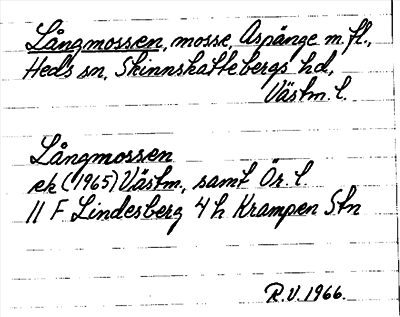 Långmossen, mosse, Aspänge m.fl.,
Heds sn, Skinnskattebergs hd,
Västm. l.
Långmossen
ek (1965) Västm., samt Ör. l.
11 F Lindesberg 4 h Krampen Stn
R.V. 1966.